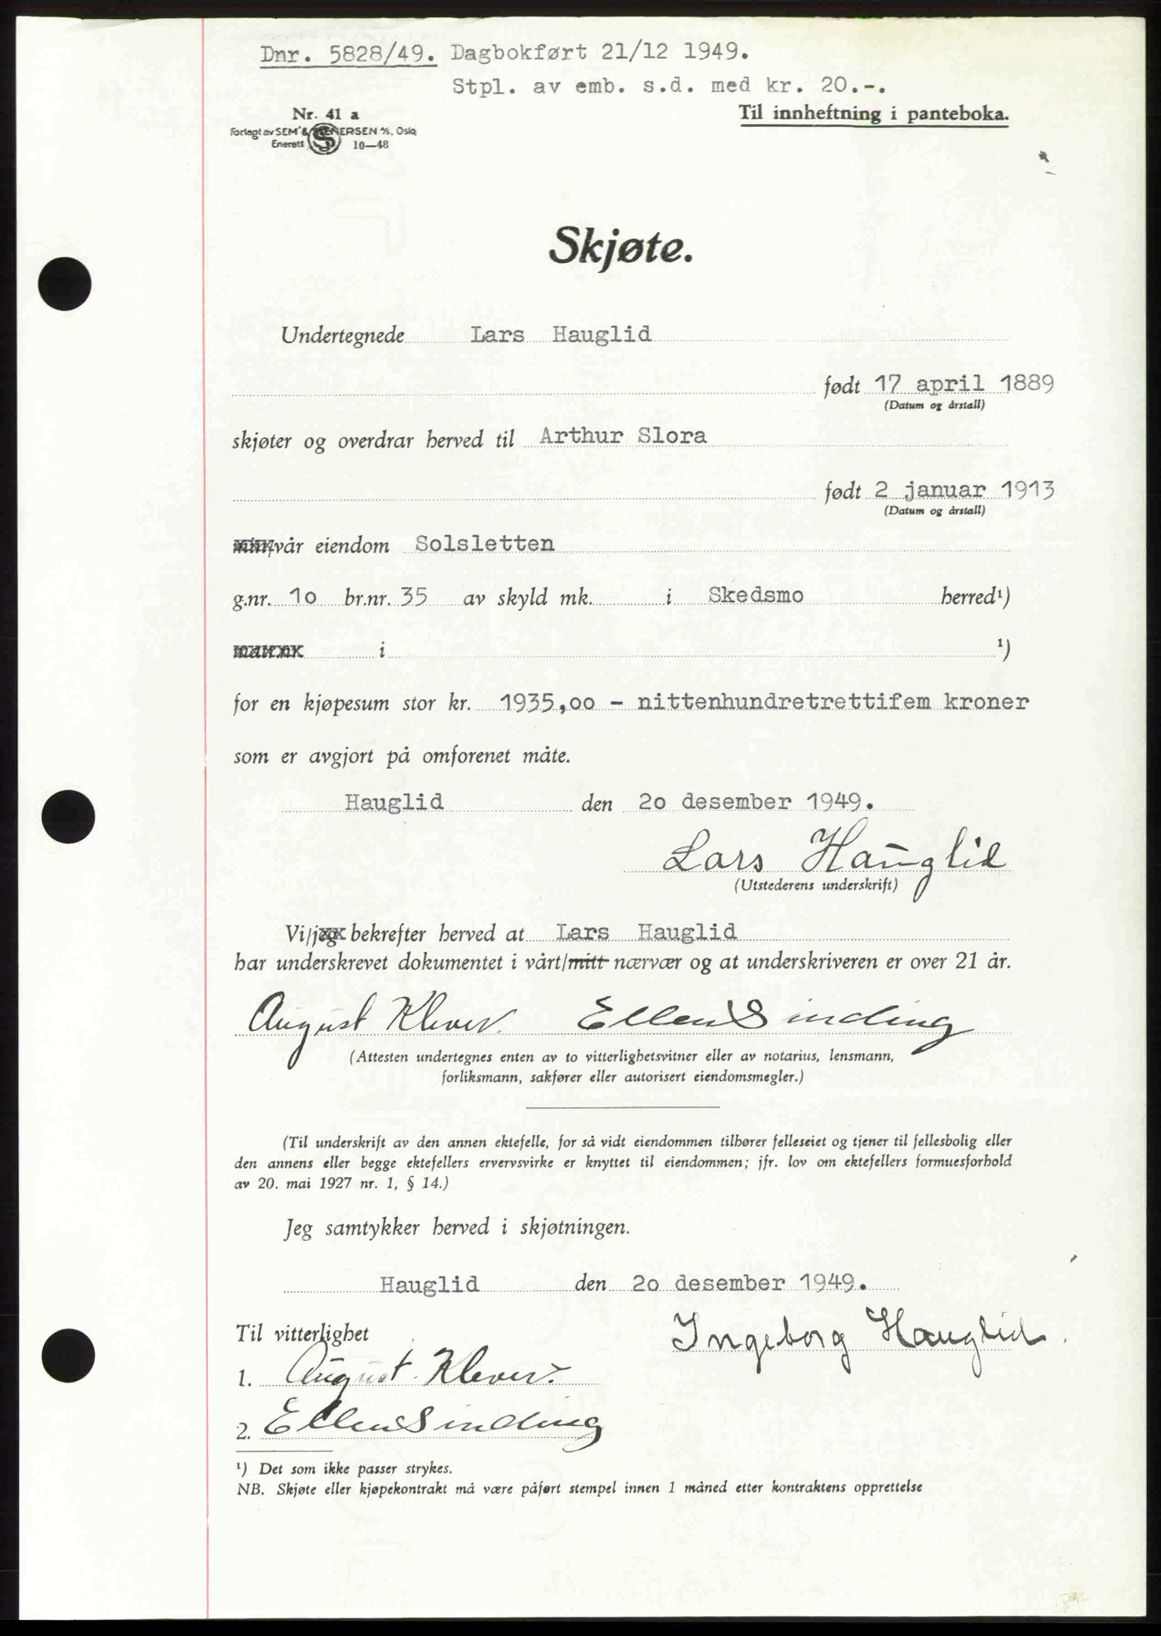 Dnr. 5828/49. Dagbokført 21/12 1949.
Stpl. av emb. s.d. med kr. 20.-.
Nr. 41 a
Til innheftning i panteboka.
Forlagt av SEM & STENERSEN A/S, Oslo
Enerett 10—48
Skjøte.
Undertegnede Lars Hauglid
født 17 april 1889
(Datum og årstall)
skjøter og overdrar herved til Arthur Slora
født 2 januar 1913
(Datum og årstall)
min/vår eiendom Solsletten
g.nr. 1o br.nr. 35 av skyld mk. i Skedsmo herred¹)
i ¹)
for en kjøpesum stor kr. 1935,oo - nittenhundretrettifem kroner
som er avgjort på omforenet måte.
Hauglid den 2o desember 1949.
Lars Hauglid
(Utstederens underskrift)
Vi/jeg bekrefter herved at Lars Hauglid
har underskrevet dokumentet i vårt/mitt nærvær og at underskriveren er over 21 år.
August Klever. Ellen Sinding
(Attesten undertegnes enten av to vitterlighetsvitner eller av notarius, lensmann,
forliksmann, sakfører eller autorisert eiendomsmegler.)
(Til underskrift av den annen ektefelle, for så vidt eiendommen tilhører felleseiet og tjener til fellesbolig eller
den annens eller begge ektefellers ervervsvirke er knyttet til eiendommen; jfr. lov om ektefellers formuesforhold
av 20. mai 1927 nr. 1, § 14.)
Jeg samtykker herved i skjøtningen.
Hauglid den 2o desember 1949.
Til vitterlighet
Ingeborg Hauglid.
1. August Klever.
2. Ellen Sinding
¹) Det som ikke passer strykes.
NB. Skjøte eller kjøpekontrakt må være påført stempel innen 1 måned etter kontraktens opprettelse